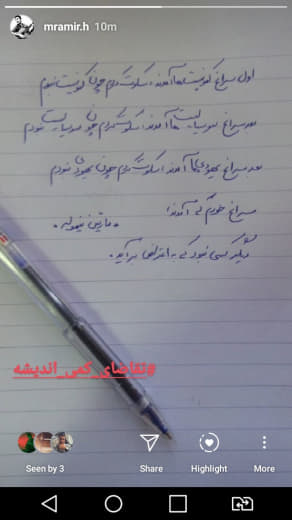 mramir.h 10m
اول سراغ کمونیست‌ها آمدند، سکوت کردم چون کمونیست نبودم
بعد سراغ سوسیالیست‌ها آمدند، سکوت کردم چون سوسیالیست نبودم
بعد سراغ یهودی‌ها آمدند، سکوت کردم چون یهودی نبودم
سراغ خودم که آمدند،
دیگر کسی نبود که به اعتراض برآید.
• مارتین نیمولر •
#تقاضای_کمی_اندیشه
Seen by 3
Share
Highlight
More